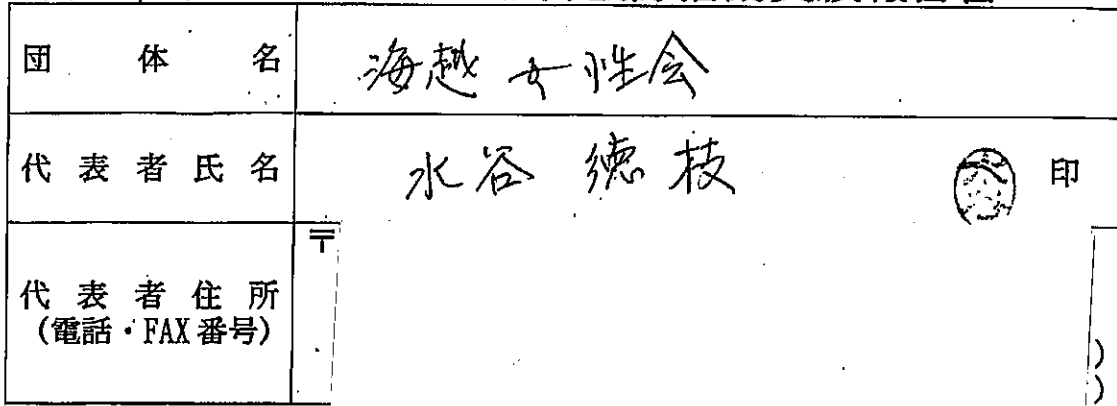 団体名 海越女性会
代表者氏名 水谷 徳枝 印
〒
代表者住所
(電話・FAX番号)
)
)